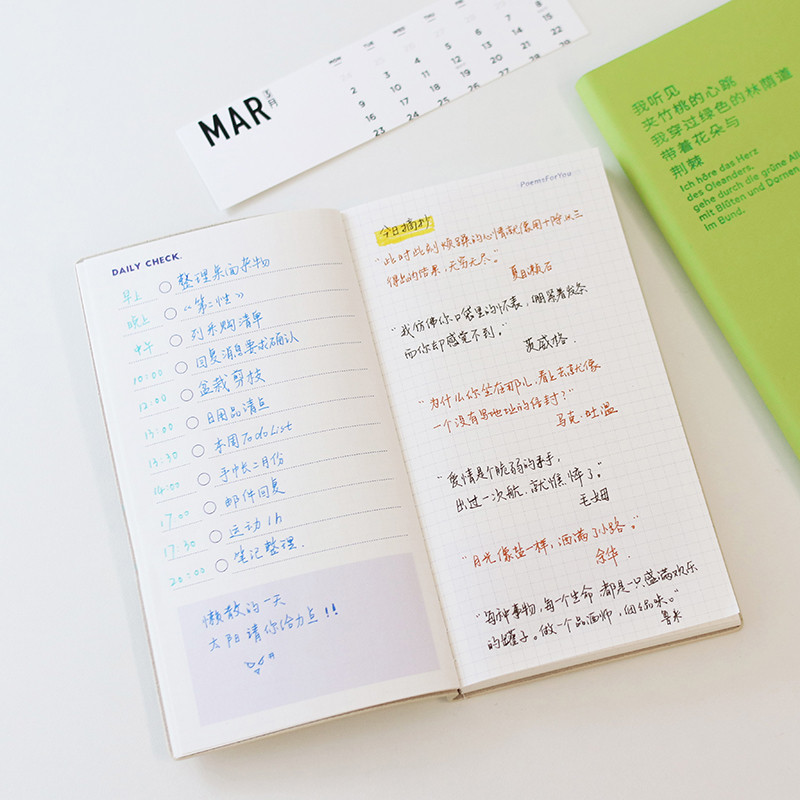 MAR
3月
MON TUE WED THU FRI SAT
2 3 4 5 6 7 8
9 10 11 12 13 14 15
16 17 18 19 20 21 22
23
我听见
夹竹桃的心跳
我穿过绿色的林荫道
带着花朵与
荆棘
Ich höre das Herz
des Oleanders.
gehe durch die grüne All
mit Blüten und Dornen
im Bund.
DAILY CHECK.
早上 整理桌面杂物
晚上 《第二性》
中午 列采购清单
10:00 回复消息要求确认
12:00 盆栽剪枝
13:00 日用品清点
13:30 本周To do List
14:00 手帐二月份
17:00 邮件回复
17:30 运动1h
20:00 笔记整理.
懒散的一天
太阳请你给力点!!
PoemsForYou
今日摘抄
“此时此刻烦躁的心情就像用十除以三
得出的结果,无穷无尽。”
夏目漱石
“我仿佛你口袋里的怀表,绷紧着发条
而你却感觉不到。”
茨威格.
“为什么你坐在那儿,看上去就像
一个没有写地址的信封?”
马克·吐温
“爱情是个脆弱的水手,
出过一次航,就憔悴了。”
毛姆
“月光像盐一样,洒满了小路。”
余华
“每种事物,每个生命 都是一只盛满欢乐
的罐子。做一个品酒师,细细品味。”
鲁米